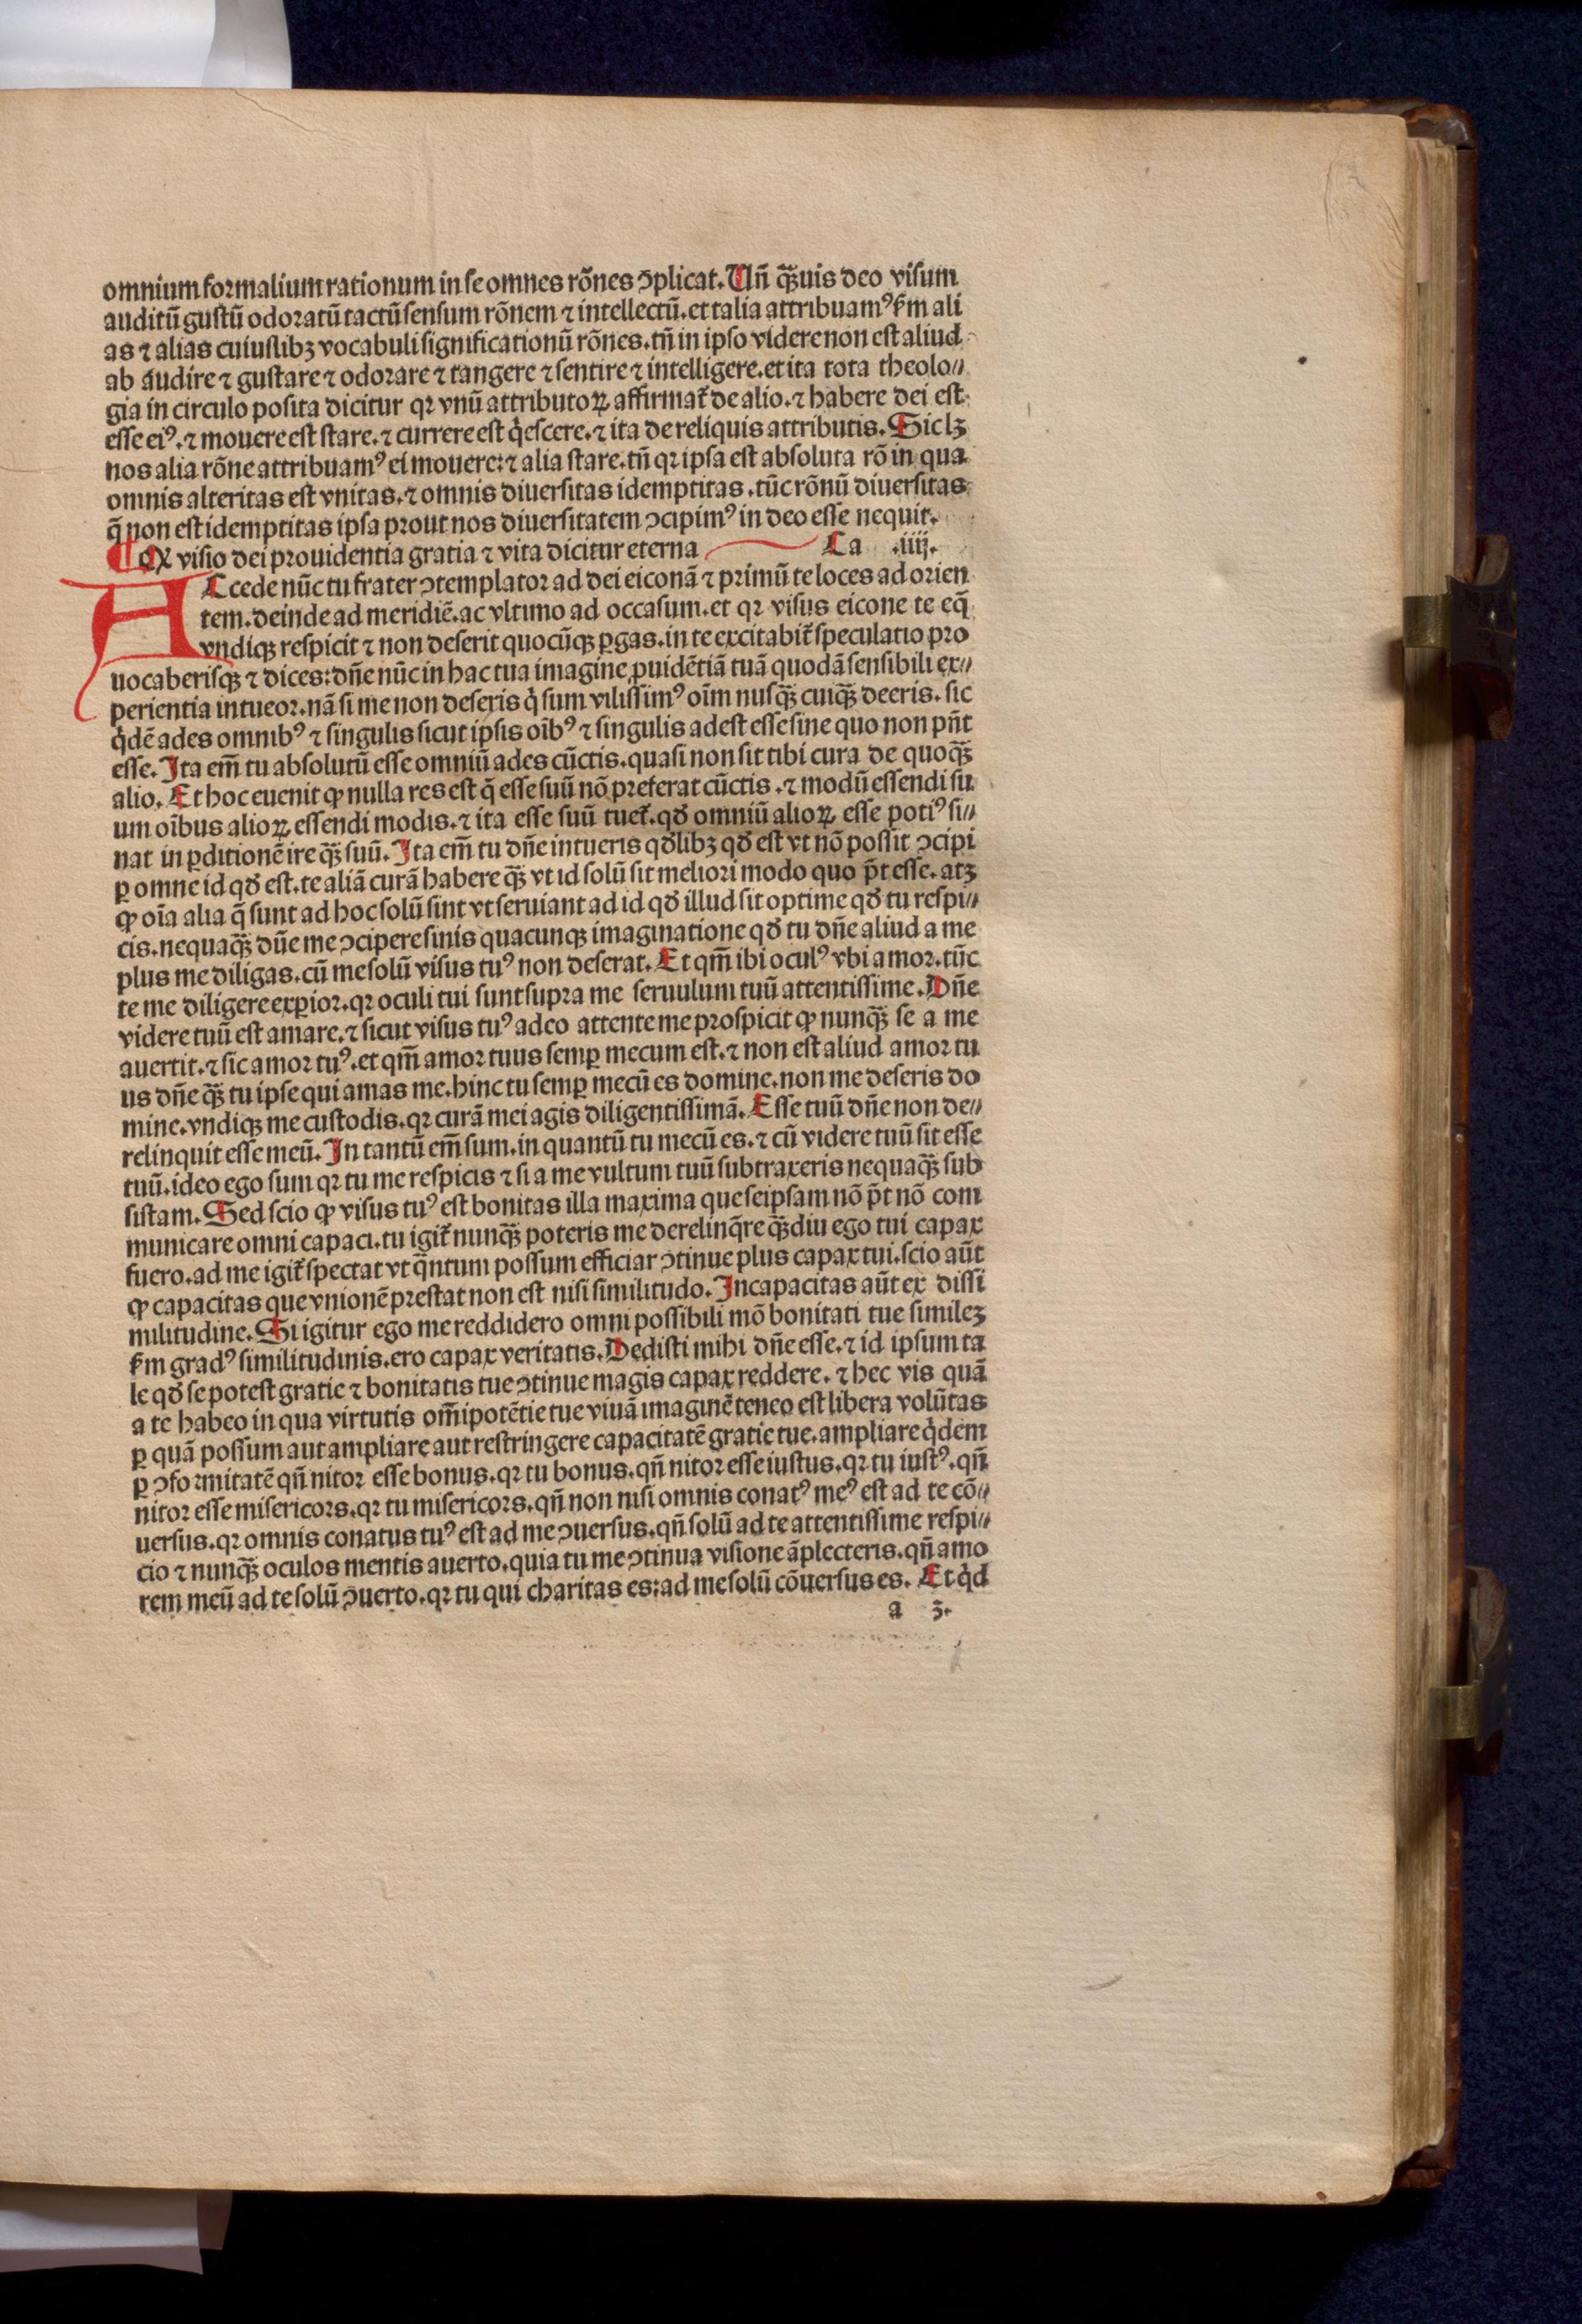 omnium formalium rationum in se omnes rõnes ↄplicat. Uñ q̃ꝫuis deo visum
auditũ gustũ odoratũ tactũ sensum rõnem ⁊ intellectũ. et talia attribuamꝰ ẜm ali
as ⁊ alias cuiuslibꝫ vocabuli significationũ rõnes. tñ in ipso videre non est aliud
ab audire ⁊ gustare ⁊ odorare ⁊ tangere ⁊ sentire ⁊ intelligere. et ita tota theolo⸗
gia in circulo posita dicitur qꝛ vnũ attributoꝝ affirmat̃ de alio. ⁊ habere dei est
esse eiꝰ. ⁊ mouere est stare. ⁊ currere est q̇escere. ⁊ ita de reliquis attributis. Sic lꝫ
nos alia rõne attribuamꝰ ei mouere: ⁊ alia stare. tñ qꝛ ipsa est absoluta rõ in qua
omnis alteritas est vnitas. ⁊ omnis diuersitas idemptitas. tũc rõnũ diuersitas
q̃ non est idemptitas ipsa prout nos diuersitatem ↄcipimꝰ in deo esse nequit.
¶ Qꝙ visio dei prouidentia gratia ⁊ vita dicitur eterna Ca .iiij.
ACcede nũc tu frater ↄtemplator ad dei eiconã ⁊ primũ te loces ad orien
tem. deinde ad meridiẽ. ac vltimo ad occasum. et qꝛ visus eicone te eq̃
vndiqꝫ respicit ⁊ non deserit quocũqꝫ ꝑgas. in te excitabit̃ speculatio pro
uocaberisqꝫ ⁊ dices: dñe nũc in hac tua imagine ꝓuidẽtiã tuã quodã sensibili ex⸗
perientia intueor. nã si me non deseris q̇ sum vilissimꝰ oĩm nusq̃ꝫ cuiq̃ꝫ deeris. sic
q̇dẽ ades omnibꝰ ⁊ singulis sicut ipsis oĩbꝰ ⁊ singulis adest esse sine quo non pñt
esse. Ita em̃ tu absolutũ esse omniũ ades cũctis. quasi non sit tibi cura de quoq̃ꝫ
alio. Et hoc euenit ꝙ nulla res est q̃ esse suũ nõ preferat cũctis. ⁊ modũ essendi su
um oĩbus alioꝝ essendi modis. ⁊ ita esse suũ tuet̃. qď omniũ alioꝝ esse potiꝰ si⸗
nat in ꝑditionẽ ire q̃ꝫ suũ. Ita em̃ tu dñe intueris qďlibꝫ qď est vt nõ possit ↄcipi
ꝑ omne id qď est. te aliã curã habere q̃ꝫ vt id solũ sit meliori modo quo p̃t esse. atꝫ
ꝙ oĩa alia q̃ sunt ad hoc solũ sint vt seruiant ad id qď illud sit optime qď tu respi⸗
cis. nequaq̃ꝫ dñe me ↄcipere sinis quacunqꝫ imaginatione qď tu dñe aliud a me
plus me diligas. cũ me solũ visus tuꝰ non deserat. Et qm̃ ibi oculꝰ vbi amor. tũc
te me diligere exꝑior. qꝛ oculi tui sunt supra me seruulum tuũ attentissime. Dñe
videre tuũ est amare. ⁊ sicut visus tuꝰ adeo attente me prospicit ꝙ nunq̃ꝫ se a me
auertit. ⁊ sic amor tuꝰ. et qm̃ amor tuus semꝑ mecum est. ⁊ non est aliud amor tu
us dñe q̃ꝫ tu ipse qui amas me. hinc tu semꝑ mecũ es domine. non me deseris do
mine. vndiqꝫ me custodis. qꝛ curã mei agis diligentissimã. Esse tuũ dñe non de⸗
relinquit esse meũ. In tantũ em̃ sum. in quantũ tu mecũ es. ⁊ cũ videre tuũ sit esse
tuũ. ideo ego sum qꝛ tu me respicis ⁊ si a me vultum tuũ subtraxeris nequaq̃ꝫ sub
sistam. Sed scio ꝙ visus tuꝰ est bonitas illa maxima que seipsam nõ p̃t nõ com
municare omni capaci. tu igit̃ nunq̃ꝫ poteris me derelinq̃re q̃ꝫdiu ego tui capax
fuero. ad me igit̃ spectat vt q̃ntum possum efficiar ↄtinue plus capax tui. scio aũt
ꝙ capacitas que vnionẽ prestat non est nisi similitudo. Incapacitas aũt ex dissi
militudine. Si igitur ego me reddidero omni possibili mõ bonitati tue simileꝫ
ẜm gradꝰ similitudinis. ero capax veritatis. Dedisti mihi dñe esse. ⁊ id ipsum ta
le qď se potest gratie ⁊ bonitatis tue ↄtinue magis capax reddere. ⁊ hec vis quã
a te habeo in qua virtutis om̃ipotẽtie tue viuã imaginẽ teneo est libera volũtas
ꝑ quã possum aut ampliare aut restringere capacitatẽ gratie tue. ampliare q̇dem
ꝑ ↄformitatẽ qñ nitor esse bonus. qꝛ tu bonus. qñ nitor esse iustus. qꝛ tu iustꝰ. qñ
nitor esse misericors. qꝛ tu misericors. qñ non nisi omnis conatꝰ meꝰ est ad te cõ⸗
uersus. qꝛ omnis conatus tuꝰ est ad me ↄuersus. qñ solũ ad te attentissime respi⸗
cio ⁊ nunq̃ꝫ oculos mentis auerto. quia tu me ↄtinua visione ãplecteris. qñ amo
rem meũ ad te solũ ↄuerto. qꝛ tu qui charitas es: ad me solũ cõuersus es. Et q̇d
a 3.